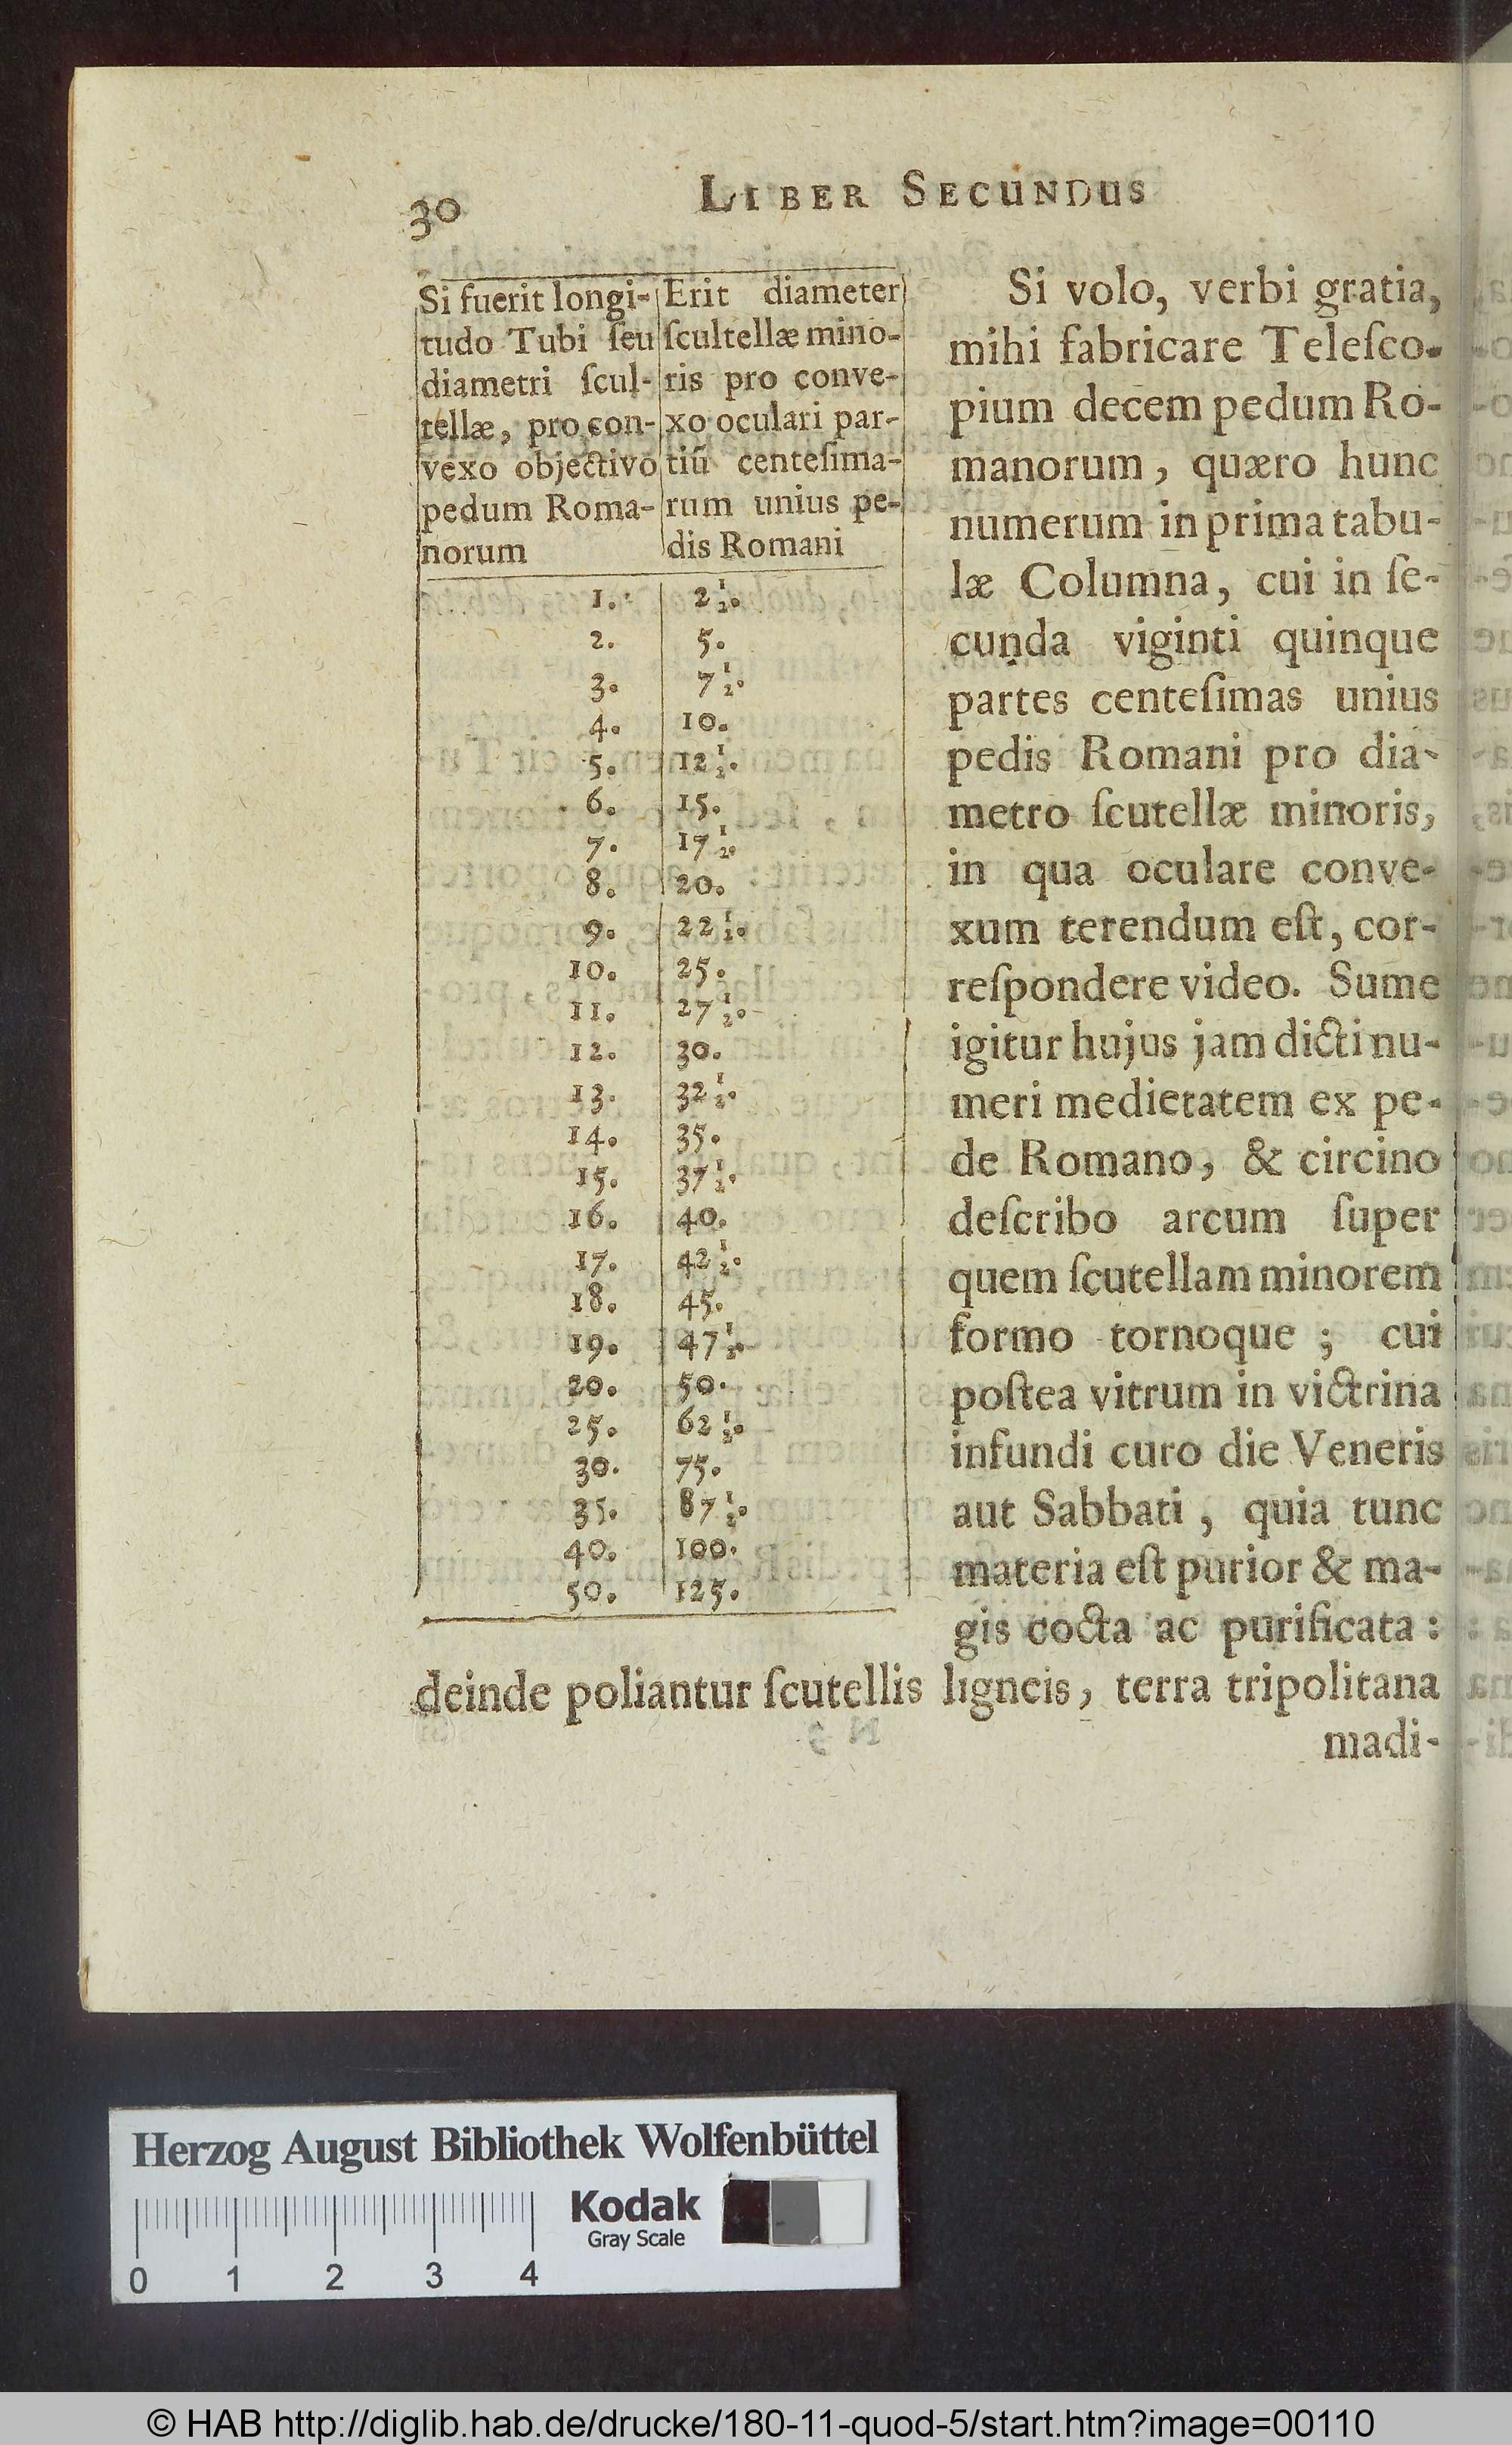 30
LIBER SECUNDUS
Si fuerit longi-
tudo Tubi ſeu
diametri ſcul-
tellæ, pro con-
vexo objectivo
pedum Roma-
norum
Erit diameter
ſcultellæ mino-
ris pro conve-
xo oculari par-
tiũ centeſima-
rum unius pe-
dis Romani
1. 2 1/2.
2. 5.
3. 7 1/2.
4. 10.
5. 12 1/2.
6. 15.
7. 17 1/2.
8. 20.
9. 22 1/2.
10. 25.
11. 27 1/2.
12. 30.
13. 32 1/2.
14. 35.
15. 37 1/2.
16. 40.
17. 42 1/2.
18. 45.
19. 47 1/2.
20. 50.
25. 62 1/2.
30. 75.
35. 87 1/2.
40. 100.
50. 125.
Si volo, verbi gratia,
mihi fabricare Teleſco-
pium decem pedum Ro-
manorum, quæro hunc
numerum in prima tabu-
læ Columna, cui in ſe-
cunda viginti quinque
partes centeſimas unius
pedis Romani pro dia-
metro ſcutellæ minoris,
in qua oculare conve-
xum terendum eſt, cor-
reſpondere video. Sume
igitur hujus jam dicti nu-
meri medietatem ex pe-
de Romano, & circino
deſcribo arcum ſuper
quem ſcutellam minorem
formo tornoque ; cui
poſtea vitrum in victrina
infundi curo die Veneris
aut Sabbati, quia tunc
materia eſt purior & ma-
gis cocta ac purificata :
deinde poliantur ſcutellis ligneis, terra tripolitana
madi-
Herzog August Bibliothek Wolfenbüttel
Kodak
Gray Scale
0 1 2 3 4
© HAB http://diglib.hab.de/drucke/180-11-quod-5/start.htm?image=00110